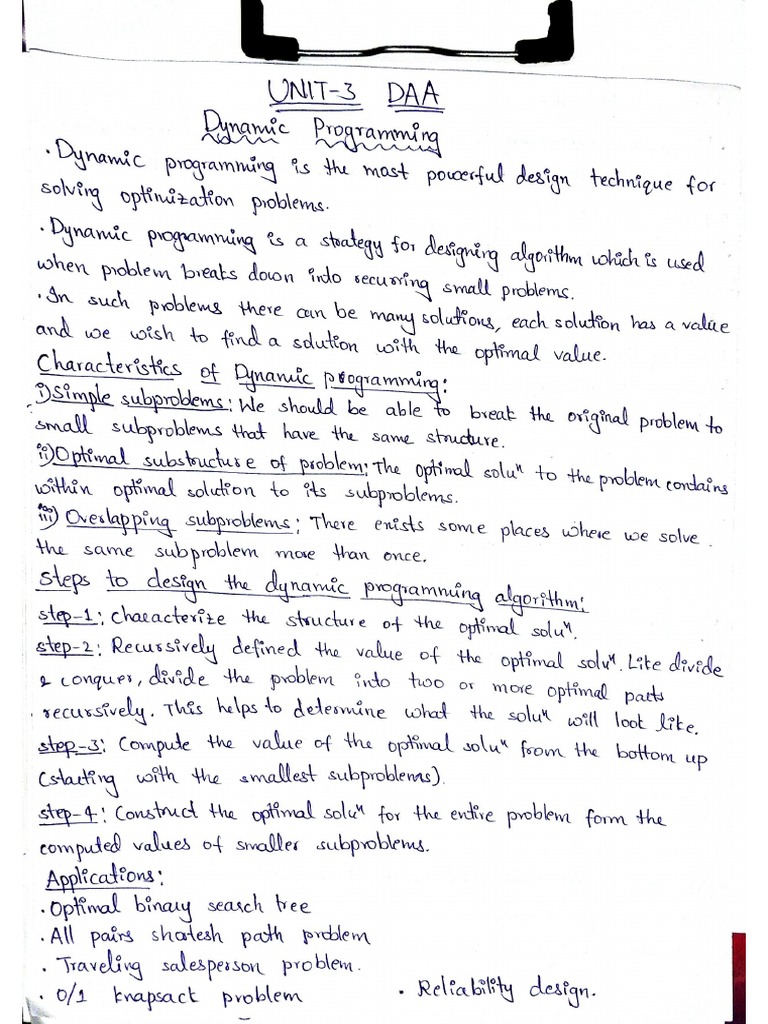 UNIT-3 DAA
Dynamic Programming
· Dynamic programming is the most powerful design technique for
solving optimization problems.
· Dynamic programming is a strategy for designing algorithm which is used
when problem breaks down into recurring small problems.
· In such problems there can be many solutions, each solution has a value
and we wish to find a solution with the optimal value.
Characteristics of Dynamic programming:
i) Simple subproblems: We should be able to break the original problem to
small subproblems that have the same structure.
ii) Optimal substructure of problem: The optimal soluⁿ to the problem contains
within optimal solution to its subproblems.
iii) Overlapping subproblems: There exists some places where we solve
the same subproblem more than once.
Steps to design the dynamic programming algorithm:
step-1: Characterize the structure of the optimal soluⁿ.
step-2: Recursively defined the value of the optimal soluⁿ. Like divide
& conquer, divide the problem into two or more optimal parts
recursively. This helps to determine what the soluⁿ will look like.
step-3: Compute the value of the optimal soluⁿ from the bottom up
(starting with the smallest subproblems).
step-4: Construct the optimal soluⁿ for the entire problem form the
computed values of smaller subproblems.
Applications:
· Optimal binary search tree
· All pairs shortesh path problem
· Traveling salesperson problem.
· 0/1 knapsact problem · Reliability design.